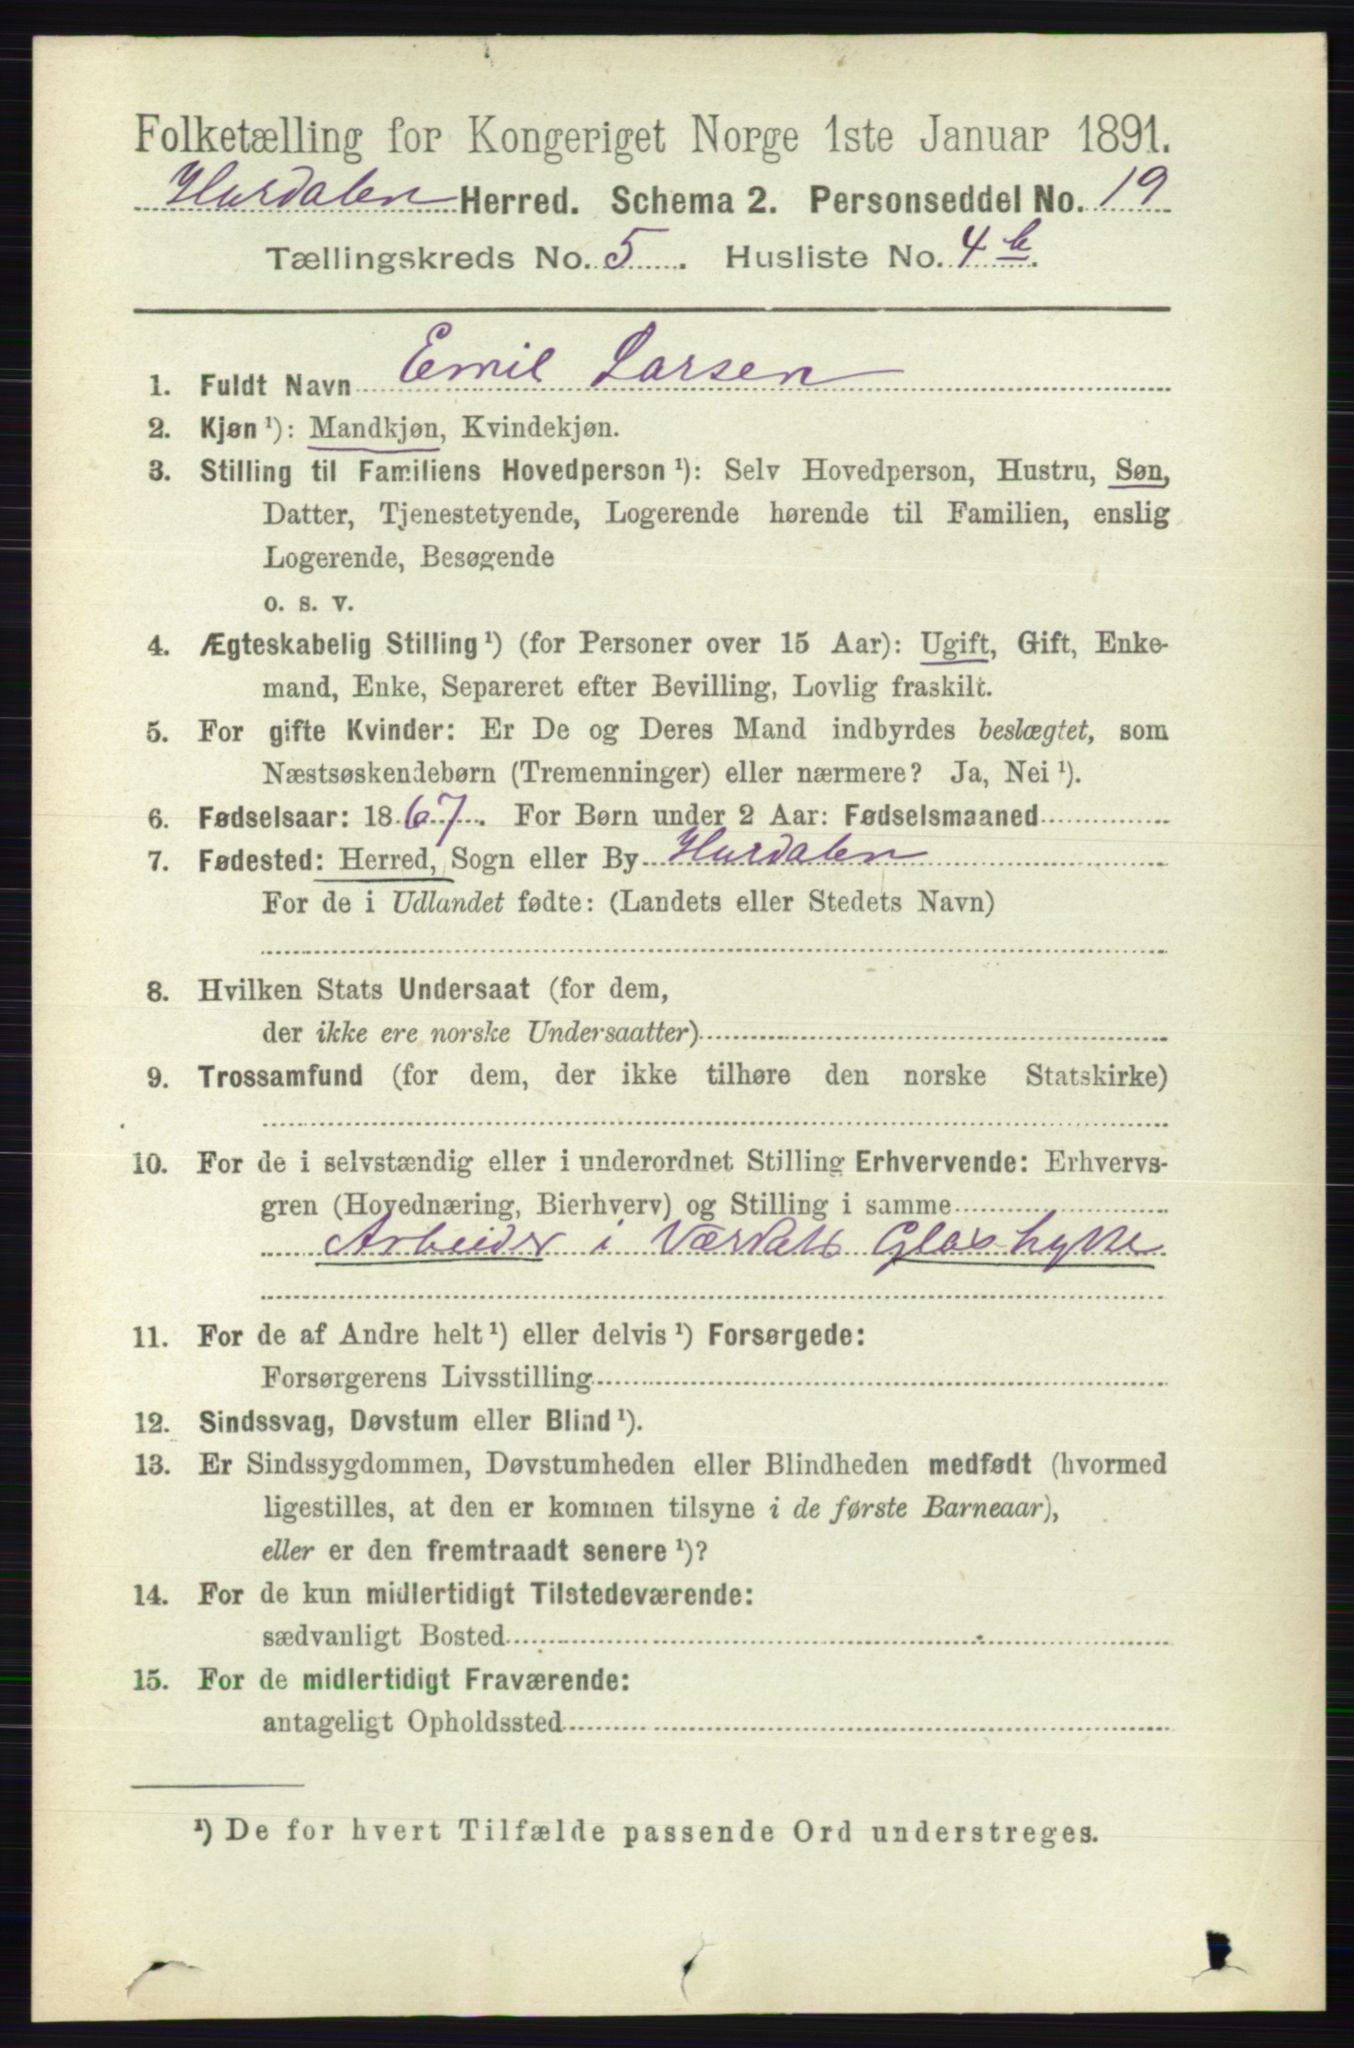 Folketælling for Kongeriget Norge 1ste Januar 1891.
Hurdalen Herred. Schema 2. Personseddel No. 19
Tællingskreds No. 5. Husliste No. 4 b.
1. Fuldt Navn Emil Larsen
2. Kjøn ¹): Mandkjøn, Kvindekjøn.
3. Stilling til Familiens Hovedperson ¹): Selv Hovedperson, Hustru, Søn,
Datter, Tjenestetyende, Logerende hørende til Familien, enslig
Logerende, Besøgende
o. s. v.
4. Ægteskabelig Stilling ¹) (for Personer over 15 Aar): Ugift, Gift, Enke-
mand, Enke, Separeret efter Bevilling, Lovlig fraskilt.
5. For gifte Kvinder: Er De og Deres Mand indbyrdes beslægtet, som
Næstsøskendebørn (Tremenninger) eller nærmere? Ja, Nei ¹).
6. Fødselsaar: 1867. For Børn under 2 Aar: Fødselsmaaned
7. Fødested: Herred, Sogn eller By Hurdalen
For de i Udlandet fødte: (Landets eller Stedets Navn)
8. Hvilken Stats Undersaat (for dem,
der ikke ere norske Undersaatter)
9. Trossamfund (for dem, der ikke tilhøre den norske Statskirke)
10. For de i selvstændig eller i underordnet Stilling Erhvervende: Erhvervs-
gren (Hovednæring, Bierhverv) og Stilling i samme
Arbeider i Glashytte
11. For de af Andre helt ¹) eller delvis ¹) Forsørgede:
Forsørgerens Livsstilling
12. Sindssvag, Døvstum eller Blind ¹).
13. Er Sindssygdommen, Døvstumheden eller Blindheden medfødt (hvormed
ligestilles, at den er kommen tilsyne i de første Barneaar),
eller er den fremtraadt senere ¹)?
14. For de kun midlertidigt Tilstedeværende:
sædvanligt Bosted
15. For de midlertidigt Fraværende:
antageligt Opholdssted
¹) De for hvert Tilfælde passende Ord understreges.